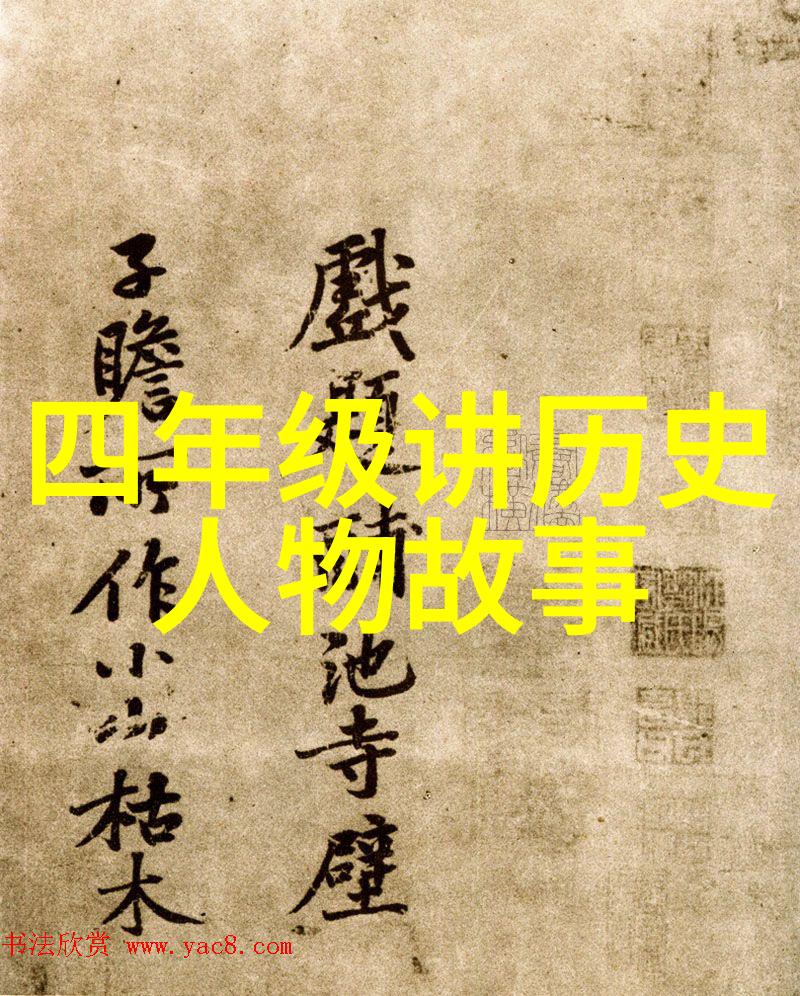 四年级讲历史
人物故事
戲題酺池寺壁
子瞻所作小山枯木
书法欣赏 www.yac8.com